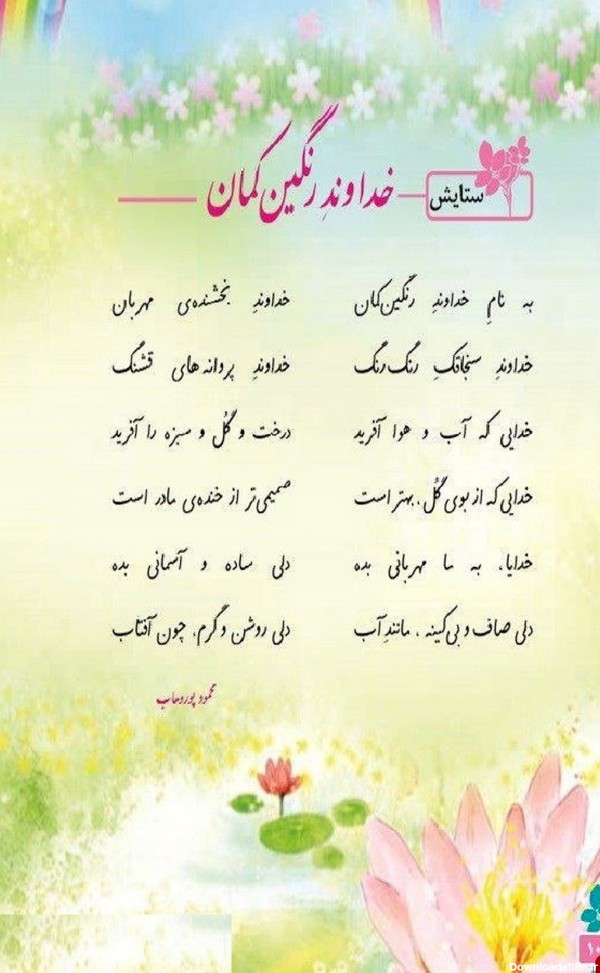 ستایش
خداوندِ رنگین کمان
به نامِ خداوندِ رنگین‌کمان خداوندِ بخشنده‌ی مهربان
خداوندِ سنجاقکِ رنگ رنگ خداوندِ پروانه های قشنگ
خدایی که آب و هوا آفرید درخت و گُل و سبزه را آفرید
خدایی که از بوی گُل، بهتر است صمیمی‌تر از خنده‌ی مادر است
خدایا، به ما مهربانی بده دلی ساده و آسمانی بده
دلی صاف و بی‌کینه، مانندِ آب دلی روشن و گرم، چون آفتاب
محمود پوروهاب